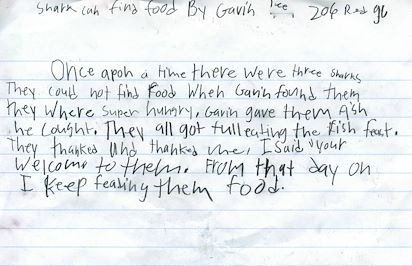 Shark can find food By Gavin Lee 206 Read
Once apon a time there were three sharks
They could not find Food when Gavin found them
they where super hungry. Gavin gave them fish
he cought. They all got full eating the Fish feast.
They thanked and thanked me, I said "your
Welcome to them. From that day on
I keep feading them food.